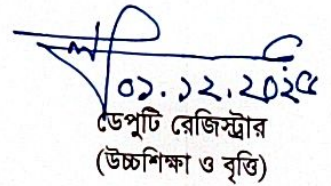 ০১.১২.২০২৫
ডেপুটি রেজিস্ট্রার
(উচ্চশিক্ষা ও বৃত্তি)